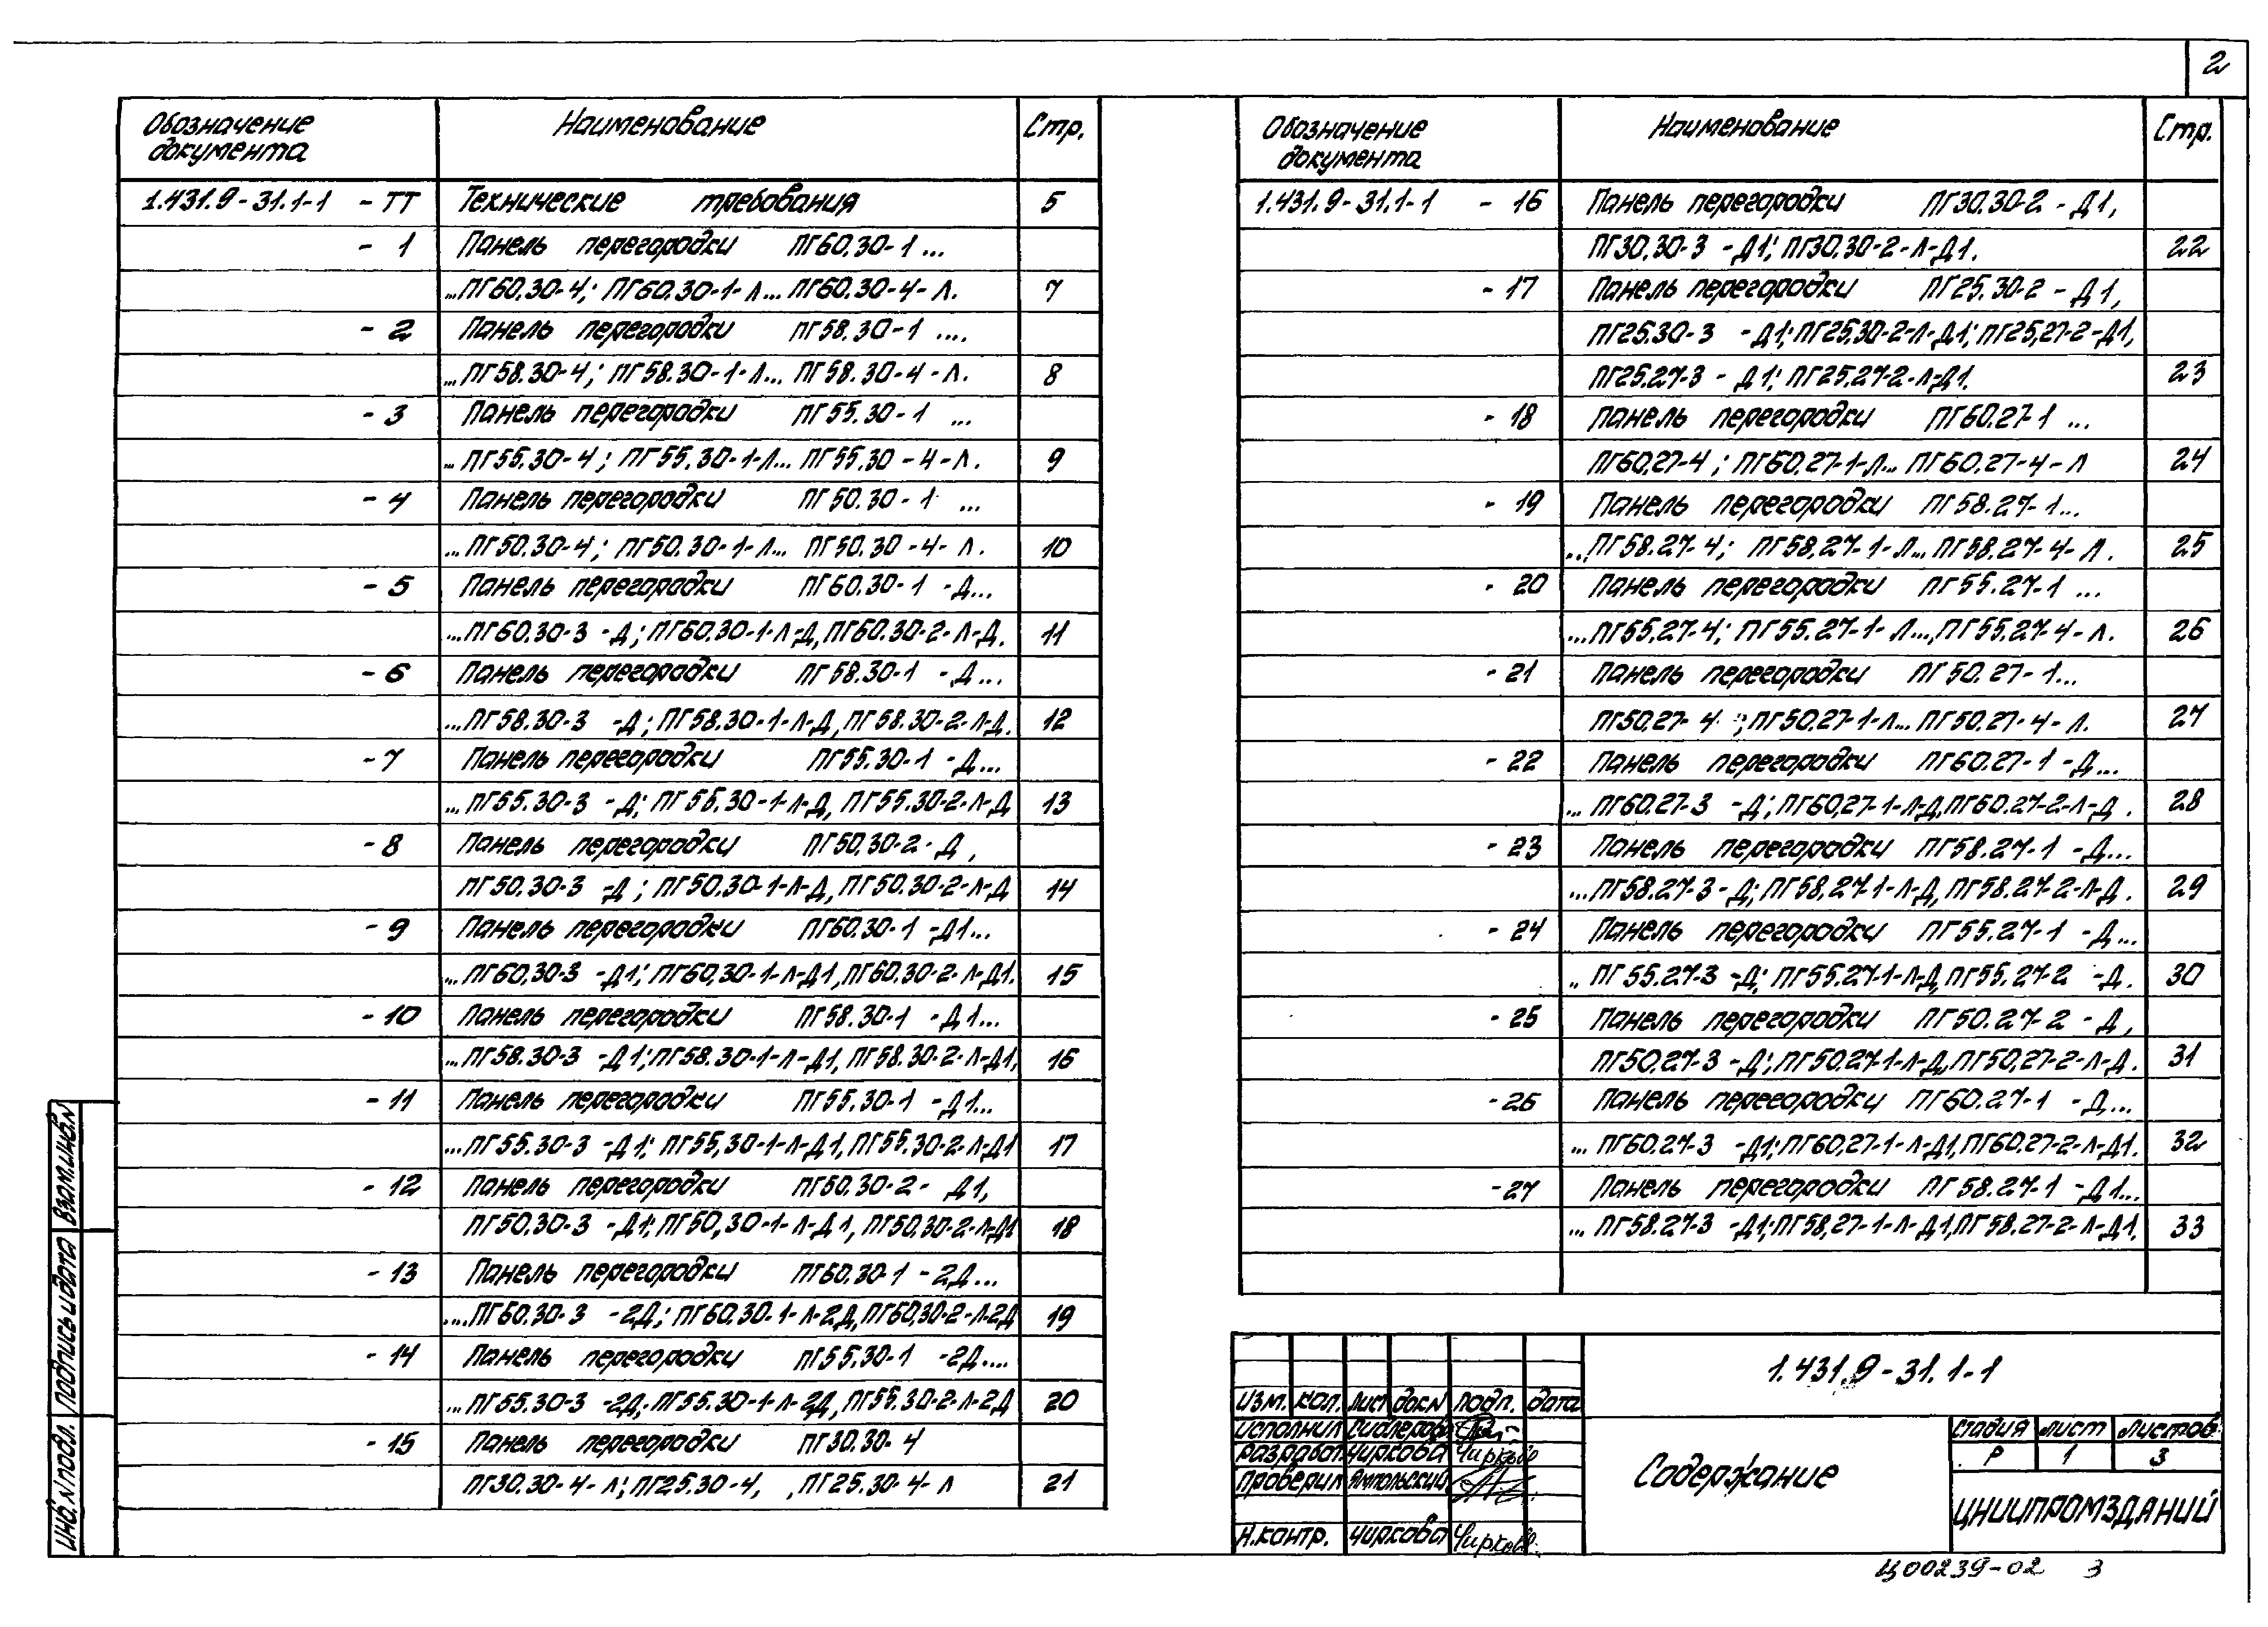 2
Обозначение документа Наименование Стр.
1.431.9-31.1-1 - ТТ Технические требования 5
- 1 Панель перегородки ПГ60.30-1 ...
...ПГ60.30-4; ПГ60.30-1-Л... ПГ60.30-4-Л. 7
- 2 Панель перегородки ПГ58.30-1 ....
...ПГ58.30-4; ПГ58.30-1-Л... ПГ58.30-4-Л. 8
- 3 Панель перегородки ПГ55.30-1 ...
...ПГ55.30-4; ПГ55.30-1-Л... ПГ55.30-4-Л. 9
- 4 Панель перегородки ПГ50.30-1 ...
...ПГ50.30-4; ПГ50.30-1-Л... ПГ50.30-4-Л. 10
- 5 Панель перегородки ПГ60.30-1 -Д...
...ПГ60.30-3 -Д; ПГ60.30-1-Л-Д, ПГ60.30-2-Л-Д. 11
- 6 Панель перегородки ПГ58.30-1 -Д...
...ПГ58.30-3 -Д; ПГ58.30-1-Л-Д, ПГ58.30-2-Л-Д. 12
- 7 Панель перегородки ПГ55.30-1 -Д...
...ПГ55.30-3 -Д; ПГ55.30-1-Л-Д, ПГ55.30-2-Л-Д 13
- 8 Панель перегородки ПГ50.30-2-Д,
ПГ50.30-3 -Д; ПГ50.30-1-Л-Д, ПГ50.30-2-Л-Д 14
- 9 Панель перегородки ПГ60.30-1 -Д1...
...ПГ60.30-3 -Д1; ПГ60.30-1-Л-Д1, ПГ60.30-2-Л-Д1. 15
- 10 Панель перегородки ПГ58.30-1 -Д1...
...ПГ58.30-3 -Д1; ПГ58.30-1-Л-Д1, ПГ58.30-2-Л-Д1, 16
- 11 Панель перегородки ПГ55.30-1 -Д1...
...ПГ55.30-3 -Д1; ПГ55,30-1-Л-Д1, ПГ55.30-2-Л-Д1 17
- 12 Панель перегородки ПГ50.30-2- Д1,
ПГ50.30-3 -Д1; ПГ50,30-1-Л-Д1, ПГ50,30-2-Л-Д1 18
- 13 Панель перегородки ПГ60.30-1 -2Д...
....ПГ60.30-3 -2Д; ПГ60.30-1-Л-2Д, ПГ60,30-2-Л-2Д 19
- 14 Панель перегородки ПГ55.30-1 -2Д....
...ПГ55.30-3 -2Д, ПГ55.30-1-Л-2Д, ПГ55.30-2-Л-2Д 20
- 15 Панель перегородки ПГ30.30-4
ПГ30.30-4-Л; ПГ25.30-4, ПГ25.30-4-Л 21
Обозначение документа Наименование Стр.
1.431.9-31.1-1 - 16 Панель перегородки ПГ30.30-2 - Д1,
ПГ30.30-3 -Д1; ПГ30.30-2-Л-Д1. 22
- 17 Панель перегородки ПГ25.30-2 - Д1,
ПГ25.30-3 -Д1; ПГ25,30-2-Л-Д1; ПГ25,27-2-Д1,
ПГ25.27-3 - Д1; ПГ25.27-2-Л-Д1. 23
- 18 Панель перегородки ПГ60.27-1 ...
ПГ60.27-4; ПГ60.27-1-Л... ПГ60.27-4-Л 24
- 19 Панель перегородки ПГ58.27-1...
...ПГ58.27-4; ПГ58.27-1-Л... ПГ58.27-4-Л. 25
- 20 Панель перегородки ПГ55.27-1 ...
...ПГ55.27-4; ПГ55.27-1-Л..., ПГ55.27-4-Л. 26
- 21 Панель перегородки ПГ50.27-1...
ПГ50.27-4; ПГ50.27-1-Л... ПГ50.27-4-Л. 27
- 22 Панель перегородки ПГ60.27-1 -Д...
... ПГ60.27-3 -Д; ПГ60,27-1-Л-Д, ПГ60.27-2-Л-Д. 28
- 23 Панель перегородки ПГ58.27-1 -Д...
...ПГ58.27-3-Д; ПГ58,27-1-Л-Д, ПГ58.27-2-Л-Д. 29
- 24 Панель перегородки ПГ55.27-1 -Д...
.. ПГ55.27-3 -Д; ПГ55.27-1-Л-Д, ПГ55.27-2 -Д. 30
- 25 Панель перегородки ПГ50.27-2 -Д,
ПГ50.27-3 -Д; ПГ50.27-1-Л-Д, ПГ50,27-2-Л-Д. 31
- 26 Панель перегородки ПГ60.27-1 -Д...
... ПГ60.27-3 -Д1; ПГ60,27-1-Л-Д1, ПГ60.27-2-Л-Д1. 32
- 27 Панель перегородки ПГ58.27-1 -Д1...
... ПГ58.27-3 -Д1; ПГ58,27-1-Л-Д1, ПГ58.27-2-Л-Д1, 33
1.431.9-31.1-1
Изм. Кол. Лист Док.N Подп. Дата
Исполнил
Разработ. Чиркова Чиркова
Проверил Ямпольский
Н.контр. Чиркова Чиркова
Содержание
Стадия Лист Листов
Р 1 3
ЦНИИПРОМЗДАНИЙ
Ц00239-02 3
Инв.N подл. Подпись и дата Взам.инв.N